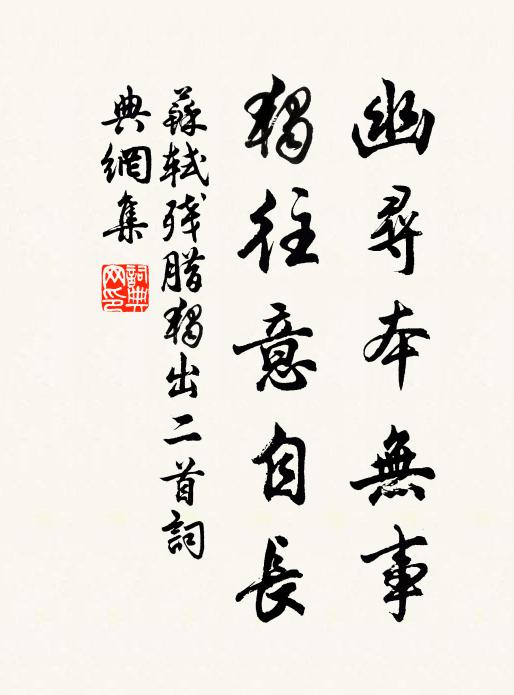 幽尋本無事
獨往意自長
蘇軾殘腊獨出二首詞
典網集
詞典
网印